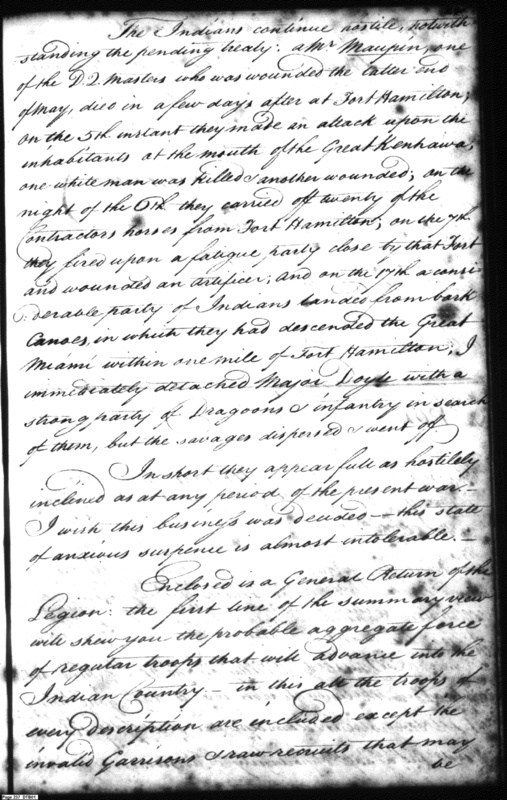 The Indians continue hostile, notwith
standing the pending treaty: a Mr. Maupin, one
of the D. Q. Masters who was wounded the latter end
of May, died in a few days after at Fort Hamilton;
on the 5th instant they made an attack upon the
inhabitants at the mouth of the Great Kenhawa,
one white man was killed & another wounded; on the
night of the 6th they carried off twenty of the
Contractors horses from Fort Hamilton; on the 7th
they fired upon a fatigue party close by that Fort
and wounded an artificer; and on the 17th a consi
derable party of Indians landed from bark
Canoes, in which they had descended the Great
Miami within one mile of Fort Hamilton; I
immediately detached Major Doyle with a
strong party of Dragoons & infantry in search
of them, but the savages dispersed & went off
In short they appear full as hostilely
inclined as at any period of the present war.—
I wish this business was decided — this state
of anxious suspence is almost intolerable.—
Enclosed is a General Return of the
Legion: the first line of the summary view
will shew you the probable aggregate force
of regular troops that will advance into the
Indian Country — in this all the troops of
every description are included except the
invalid Garrisons & raw recruits that may
be